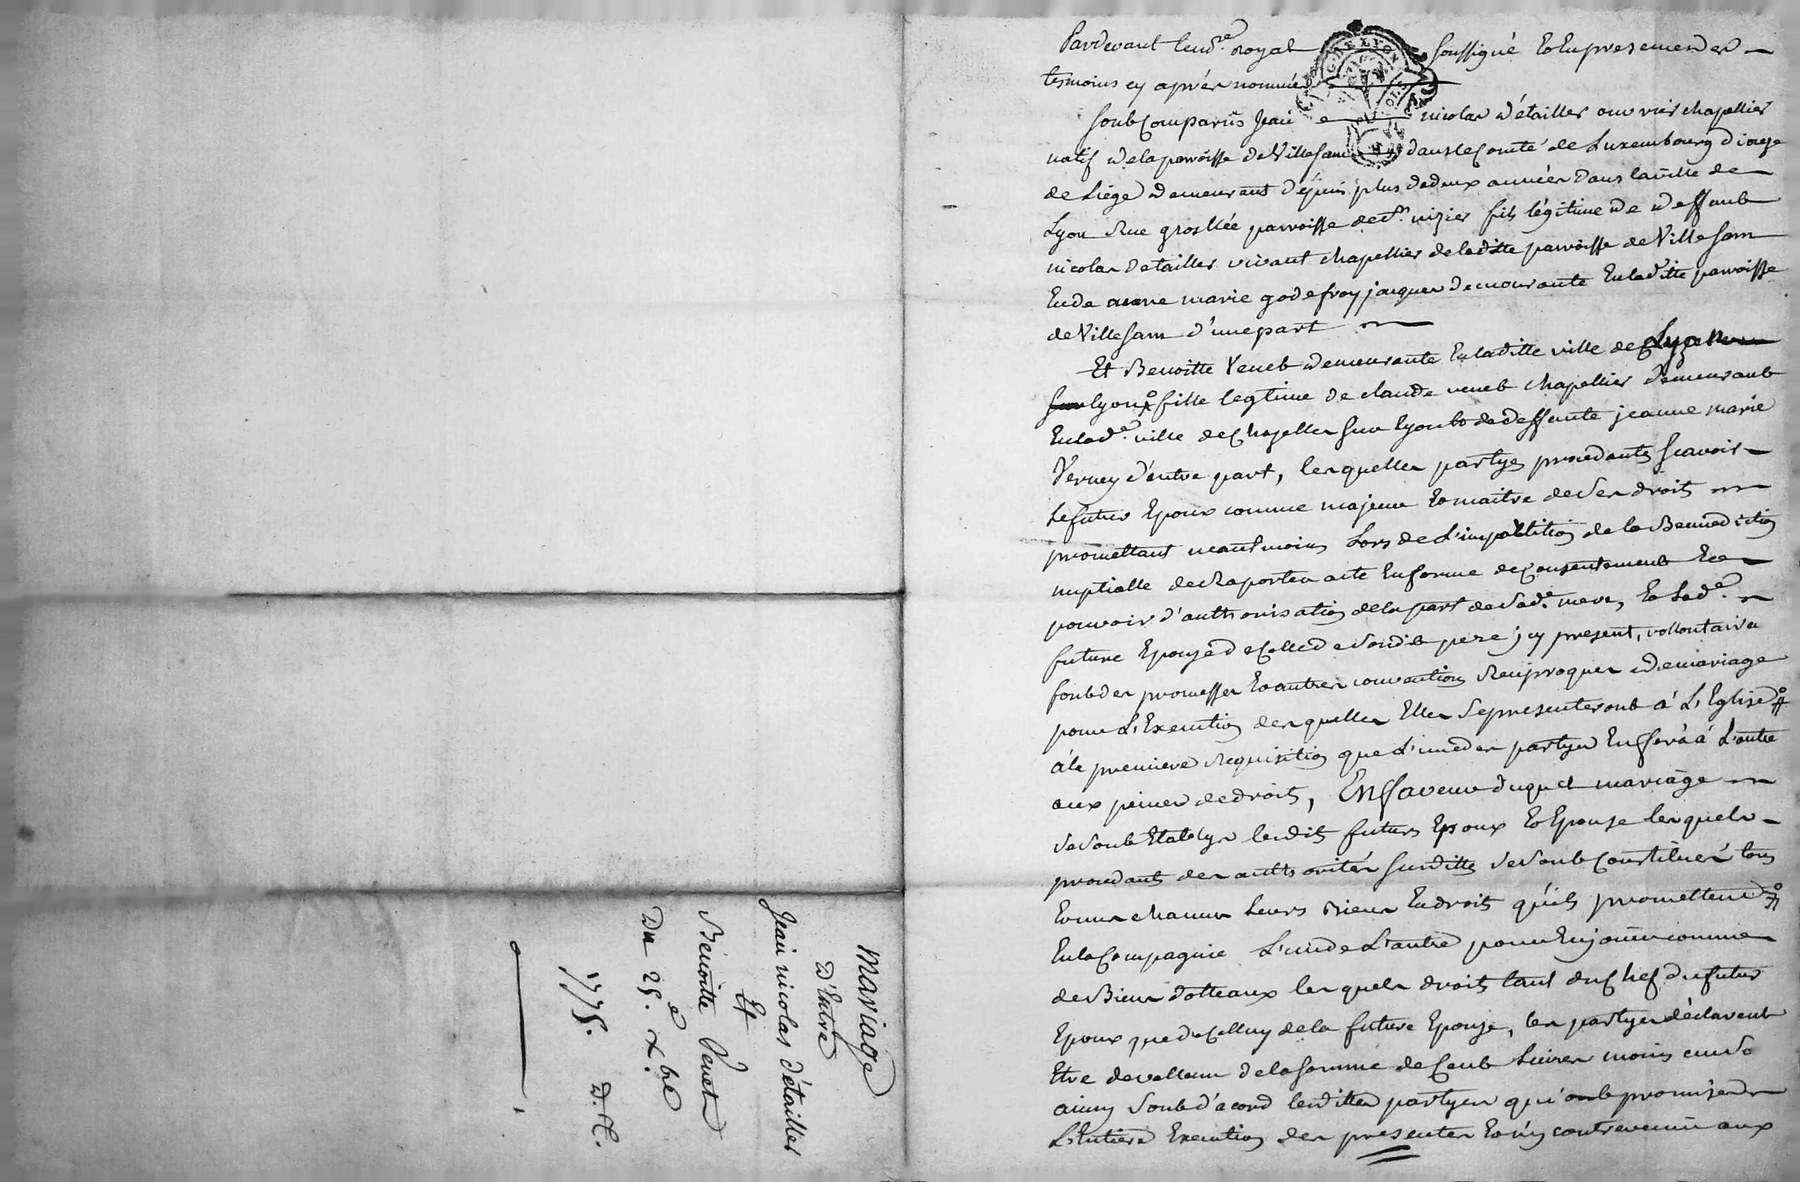 Pardevant le nore. royal soussigné et en presence des
tesmoins cy aprés nommés
sont comparûs Jean nicolas d'étailler ouvrier chapellier
natif de la parroisse de Villesam dans le Comté de Luxembourg dioceze
de Liége demeurant dépuis plus de deux années dans la ville de
Lyon Rue groslée parroisse de St. nizier fils légitime de deffunt
nicolas detailler vivant chapellier de la ditte parroisse de Villesam
Et de anne marie godefroy jacques demeurante en la ditte parroisse
de Villesam d'une part
Et Benoitte Venet demeurante en la ditte ville de
lyon fille legtime de claude venet chapellier demeurant
en lade. ville de Chazelles sur lyon et de deffunte jeanne marie
Verney d'autre part, lesquelles partyes procedants scavoir
le futur Epoux comme majeur et maitre de ses droits
promettant neantmoins Lors de L'impartition de la Bennediction
nuptialle de Raporter acte en forme de Consentement et
pouvoir d'authorisation de la part de sade. mere, et lade.
future Epouze de Celle de sondit pere icy present, vollontaires
font des promesses et autres conventions Reciproques de mariage
pour L'Execution desquelles Elles se presenteront á L'Eglise
á la premiere Requisition que L'une des partyes en fera á L'autre
aux peines de droits, En faveur duquel mariage
se sont Etablys lesdits futurs Epoux et Epouze lesquels
procedants des authorités susdittes se sont Constitués tous
et un chacun leurs Biens et droits qu'ils promettent
en la Compagnie L'un de L'autre pour en jouir comme
de Biens dotteaux lesquels droits tant du Chef du futur
Epoux que de Celluy de la future Epouze, les partyes déclarent
Etre de valleur de la somme de Cent Livres moins
ainsy sont d'acord lesdittes partyes qui ont promis
L'Entiere Execution des presentes et n'y contrevenir aux
Mariage
D'Entre
Jean nicolas d'étailler
Et
Benoitte Venet
Du 25.e xbre
1775. D.C.